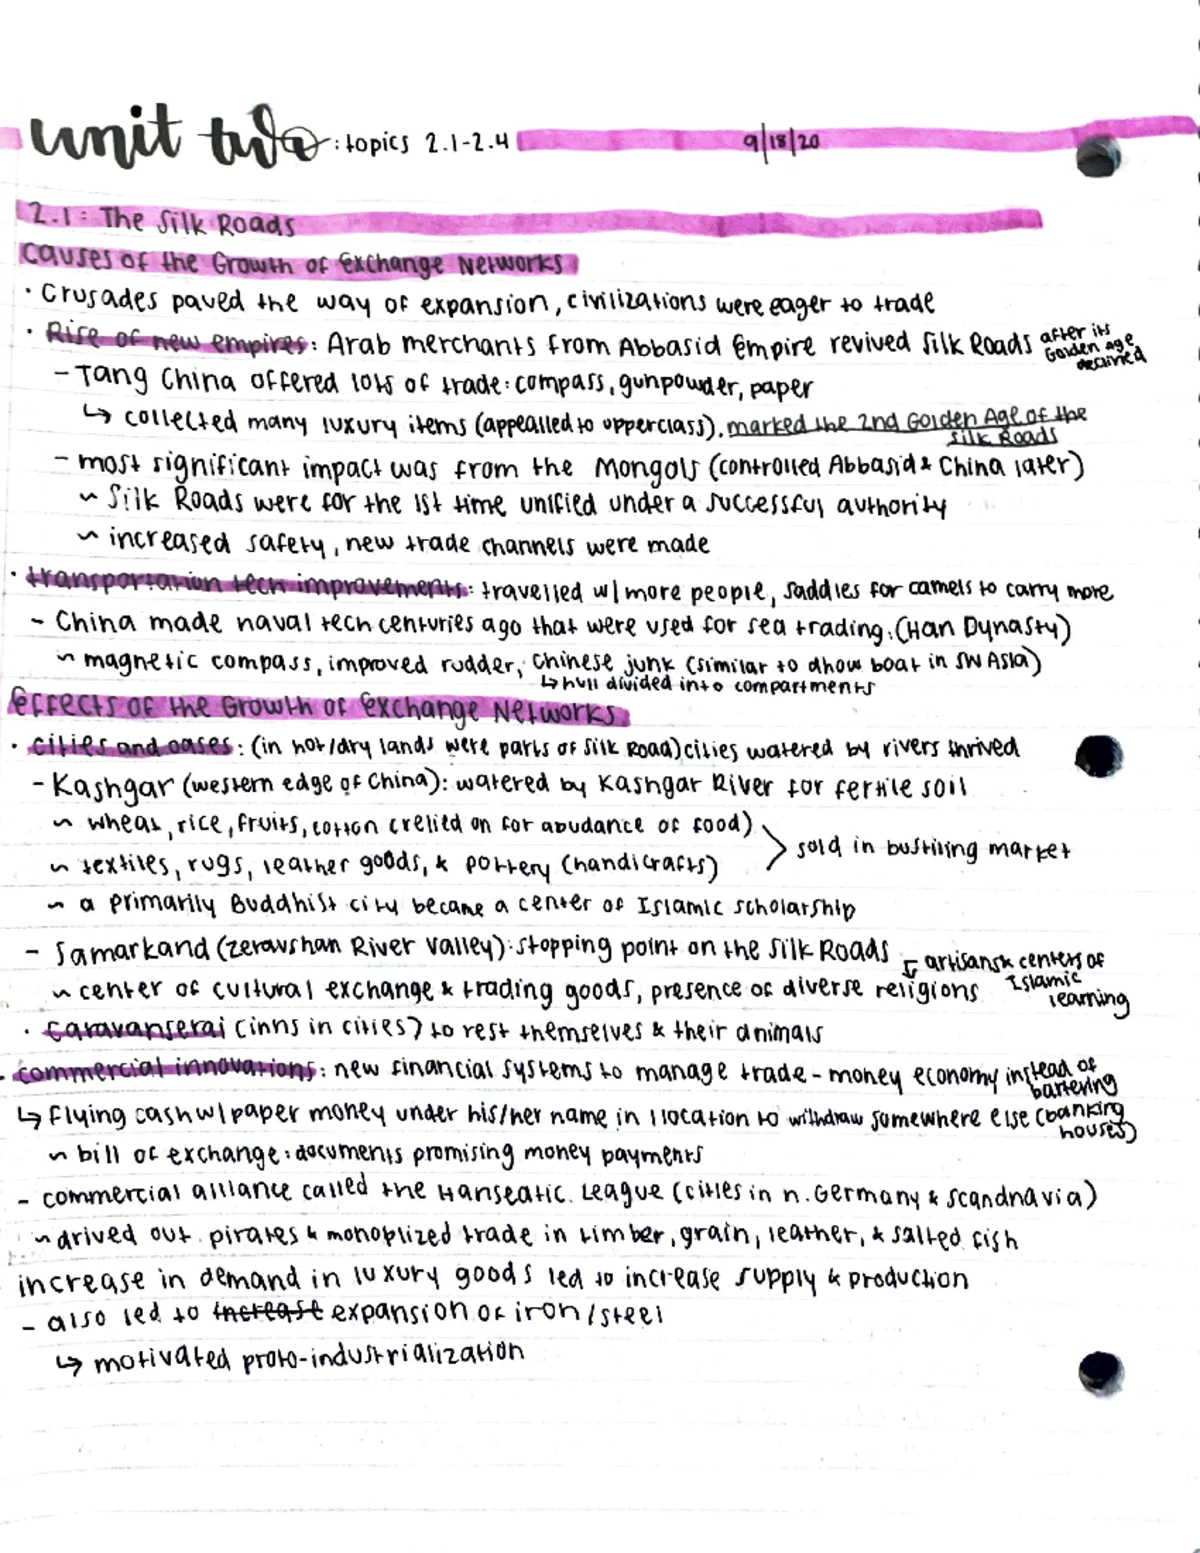 unit two: topics 2.1-2.4 9/18/20
2.1: The Silk Roads
Causes of the Growth of Exchange Networks
· Crusades paved the way of expansion, civilizations were eager to trade
· Rise of new empires: Arab merchants from Abbasid Empire revived Silk Roads after its Golden Age declined
- Tang China offered lots of trade: compass, gunpowder, paper
↳ collected many luxury items (appealled to upperclass). marked the 2nd Golden Age of the Silk Roads
- most significant impact was from the Mongols (controlled Abbasid & China later)
~ Silk Roads were for the 1st time unified under a successful authority
~ increased safety, new trade channels were made
· transportation tech improvements: travelled w/ more people, saddles for camels to carry more
- China made naval tech centuries ago that were used for sea trading. (Han Dynasty)
~ magnetic compass, improved rudder, Chinese junk (similar to dhow boat in SW Asia)
↳ hull divided into compartments
Effects of the Growth of Exchange Networks
· cities and oases: (in hot/dry lands were parts of Silk Road) cities watered by rivers thrived
- Kashgar (western edge of China): watered by Kashgar River for fertile soil
~ wheat, rice, fruits, cotton (relied on for abudance of food)
~ textiles, rugs, leather goods, & pottery (handicrafts) > sold in bustiling market
~ a primarily Buddhist city became a center of Islamic scholarship
- Samarkand (Zeravshan River Valley): stopping point on the Silk Roads
↳ artisans & centers of Islamic learning
~ center of cultural exchange & trading goods, presence of diverse religions
· caravanserai (inns in cities) to rest themselves & their animals
· commercial innovations: new financial systems to manage trade - money economy instead of bartering
↳ flying cash w/ paper money under his/her name in 1 location to withdraw somewhere else (banking houses)
~ bill of exchange: documents promising money payments
- commercial alliance called the Hanseatic League (cities in n. Germany & Scandnavia)
~ drived out pirates & monoplized trade in timber, grain, leather, & salted fish
increase in demand in luxury goods led to increase supply & production
- also led to increase expansion of iron/steel
↳ motivated proto-industrialization